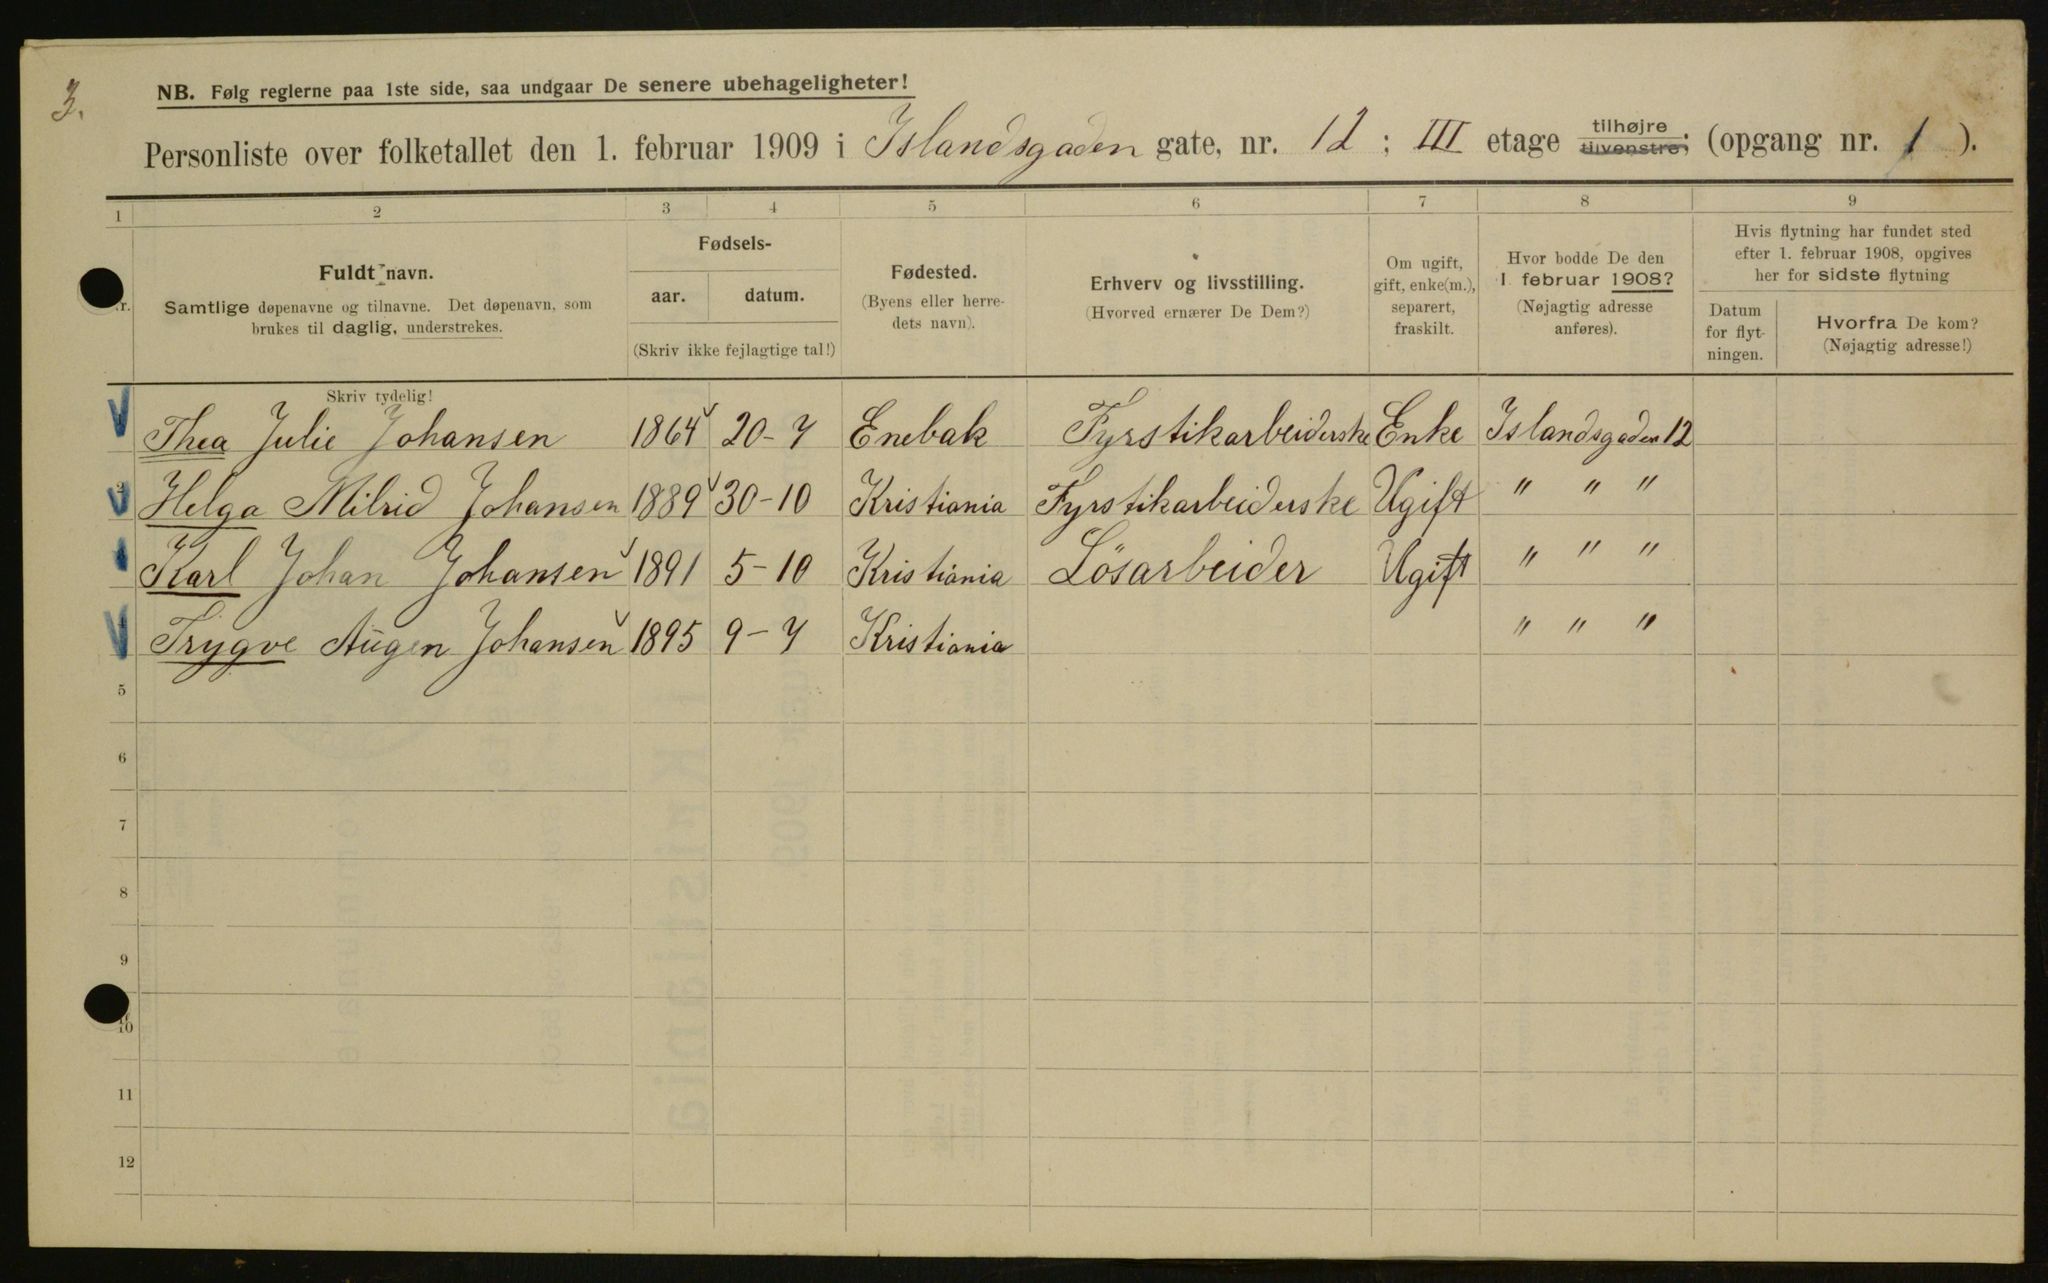 3.
NB. Følg reglerne paa 1ste side, saa undgaar De senere ubehageligheter!
Personliste over folketallet den 1. februar 1909 i Islandsgaden gate, nr. 12; III etage tilhøjre tilvenstre; (opgang nr. 1).
1 2 3 4 5 6 7 8 9
Fuldt navn.
Samtlige døpenavne og tilnavne. Det døpenavn, som
brukes til daglig, understrekes.
Fødsels-
aar. datum.
(Skriv ikke fejlagtige tal!)
Fødested.
(Byens eller herre-
dets navn).
Erhverv og livsstilling.
(Hvorved ernærer De Dem?)
Om ugift,
gift, enke(m.),
separert,
fraskilt.
Hvor bodde De den
1 februar 1908?
(Nøjagtig adresse
anføres).
Hvis flytning har fundet sted
efter 1. februar 1908, opgives
her for sidste flytning
Datum
for flyt-
ningen.
Hvorfra De kom?
(Nøjagtig adresse!)
Skriv tydelig!
Thea Julie Johansen 1864 20-7 Enebak Fyrstikarbeiderske Enke Islandsgaden 12
Helga Milrid Johansen 1889 30-10 Kristiania Fyrstikarbeiderske Ugift " " "
Karl Johan Johansen 1891 5-10 Kristiania Lösarbeider Ugift " " "
Trygve Augen Johansen 1895 9-7 Kristiania " " "
5
6
7
8
9
10
11
12